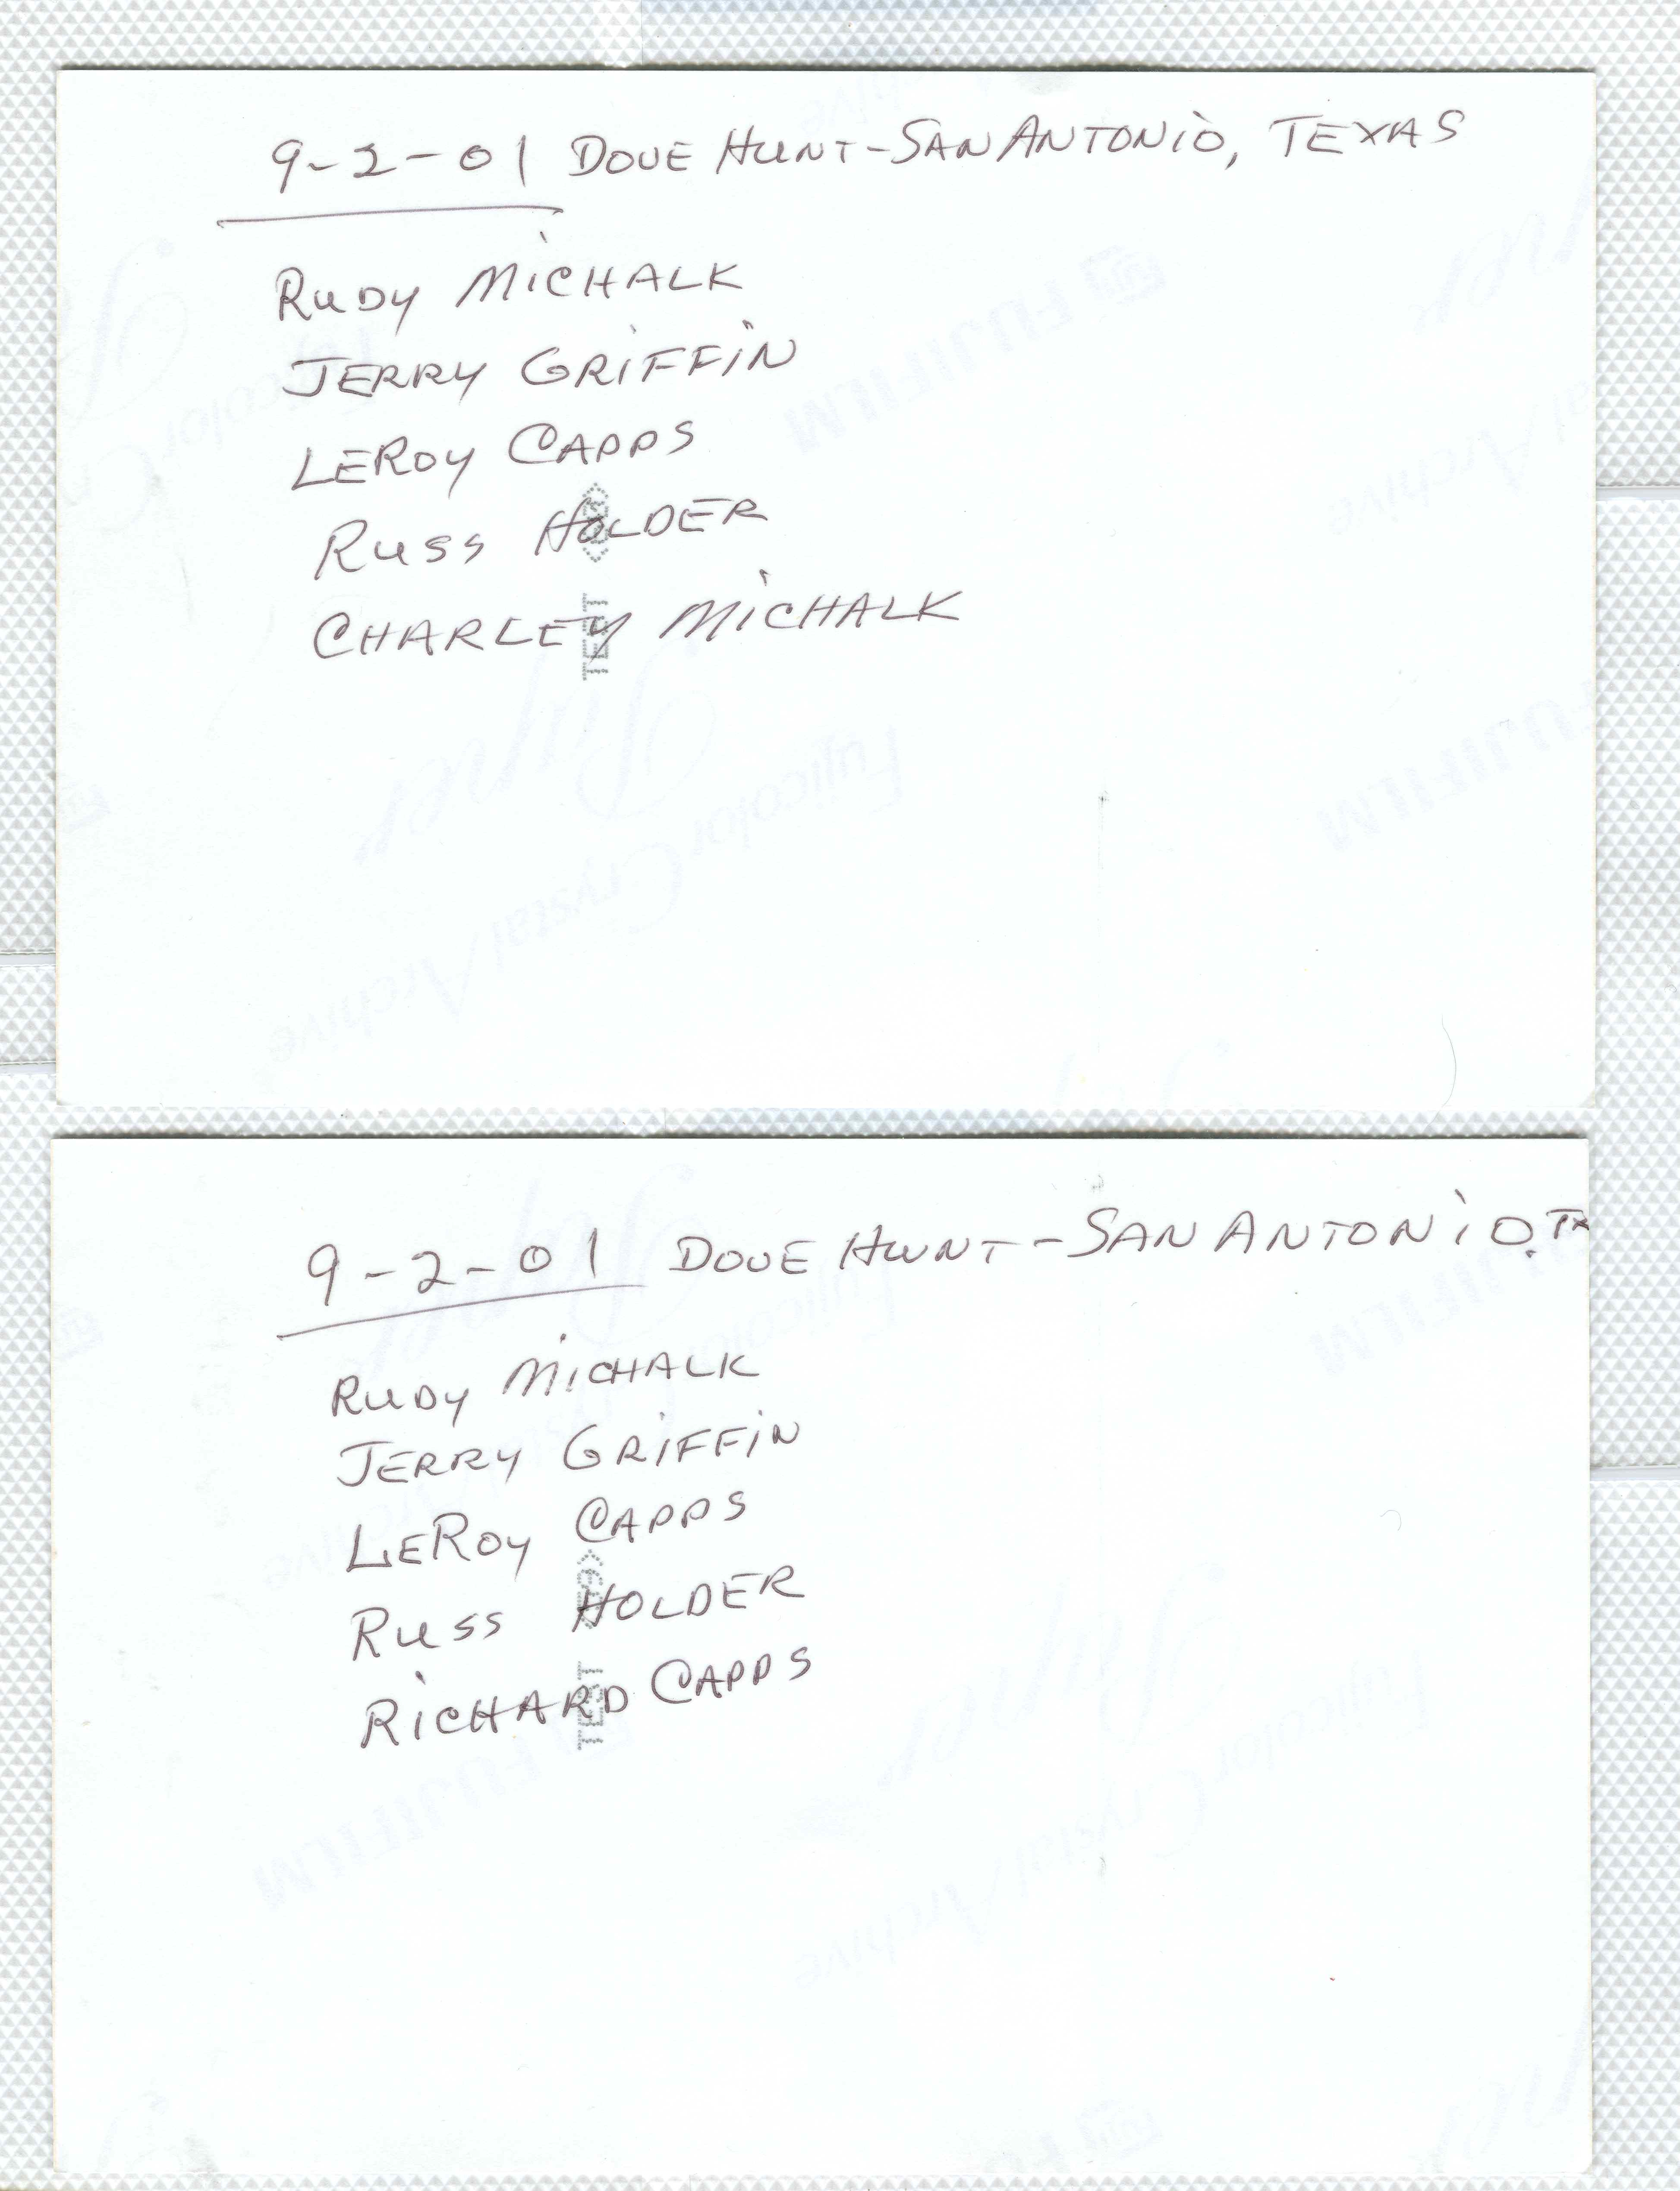 9-2-01 DOVE HUNT-SAN ANTONIO, TEXAS
RUDY MICHALK
JERRY GRIFFIN
LEROY CAPPS
RUSS HOLDER
CHARLEY MICHALK
TEST
9-2-01 DOVE HUNT-SAN ANTONIO. TX
RUDY MICHALK
JERRY GRIFFIN
LEROY CAPPS
RUSS HOLDER
RICHARD CAPPS
TEST